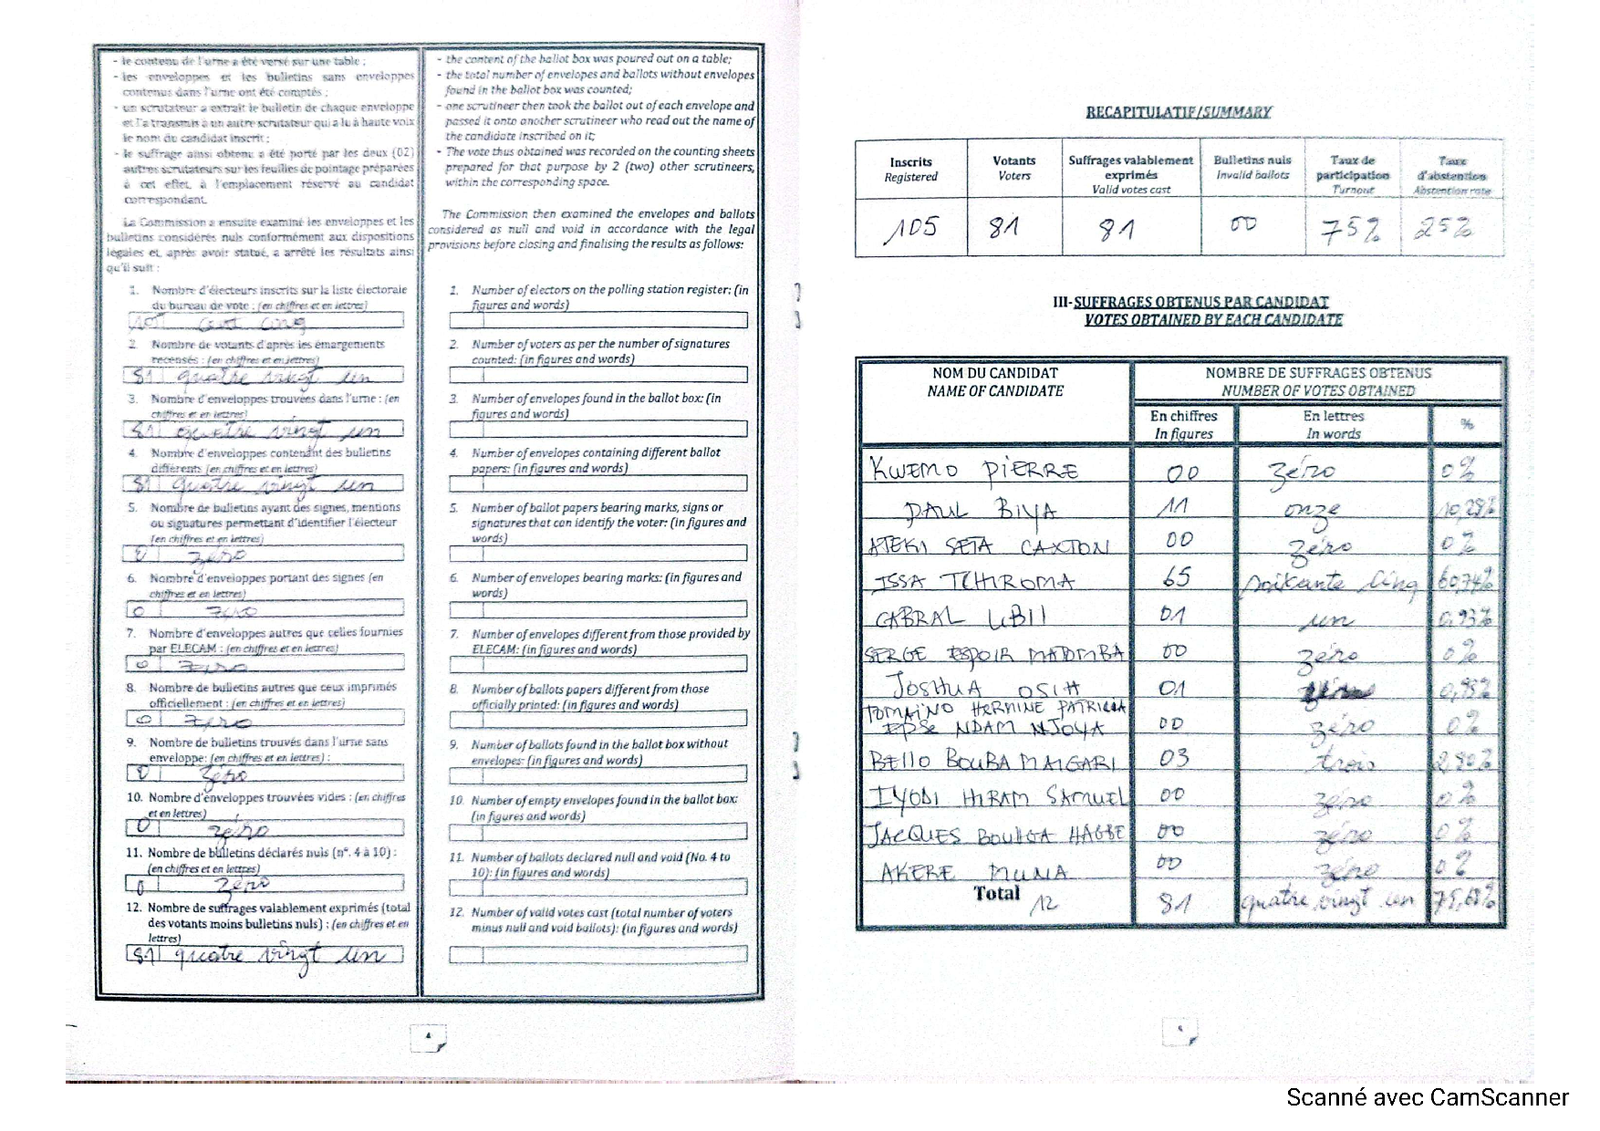 - le contenu de l'urne a été versé sur une table ;
- les enveloppes et les bulletins sans enveloppes
contenus dans l'urne ont été comptés ;
- un scrutateur a extrait le bulletin de chaque enveloppe
et l'a transmis à un autre scrutateur qui a lu à haute voix
le nom du candidat inscrit ;
- le suffrage ainsi obtenu a été porté par les deux (02)
autres scrutateurs sur les feuilles de pointage préparées
à cet effet, à l'emplacement réservé au candidat
correspondant.
La Commission a ensuite examiné les enveloppes et les
bulletins considérés nuls conformément aux dispositions
légales et, après avoir statué, a arrêté les résultats ainsi
qu'il suit :
1. Nombre d'électeurs inscrits sur la liste électorale
du bureau de vote : (en chiffres et en lettres)
105 cent cinq
2. Nombre de votants d'après les émargements
recensés : (en chiffres et en lettres)
81 quatre vingt un
3. Nombre d'enveloppes trouvées dans l'urne : (en
chiffres et en lettres)
81 quatre vingt un
4. Nombre d'enveloppes contenant des bulletins
différents (en chiffres et en lettres)
81 quatre vingt un
5. Nombre de bulletins ayant des signes, mentions
ou signatures permettant d'identifier l'électeur
(en chiffres et en lettres)
0 zéro
6. Nombre d'enveloppes portant des signes (en
chiffres et en lettres)
0 zéro
7. Nombre d'enveloppes autres que celles fournies
par ELECAM : (en chiffres et en lettres)
0 zéro
8. Nombre de bulletins autres que ceux imprimés
officiellement : (en chiffres et en lettres)
0 zéro
9. Nombre de bulletins trouvés dans l'urne sans
enveloppe: (en chiffres et en lettres) :
0 zéro
10. Nombre d'enveloppes trouvées vides : (en chiffres
et en lettres)
0 zéro
11. Nombre de bulletins déclarés nuls (n°. 4 à 10) :
(en chiffres et en lettres)
0 zéro
12. Nombre de suffrages valablement exprimés (total
des votants moins bulletins nuls) : (en chiffres et en
lettres)
81 quatre vingt un
- the content of the ballot box was poured out on a table;
- the total number of envelopes and ballots without envelopes
found in the ballot box was counted;
- one scrutineer then took the ballot out of each envelope and
passed it onto another scrutineer who read out the name of
the candidate inscribed on it;
- The vote thus obtained was recorded on the counting sheets
prepared for that purpose by 2 (two) other scrutineers,
within the corresponding space.
The Commission then examined the envelopes and ballots
considered as null and void in accordance with the legal
provisions before closing and finalising the results as follows:
1. Number of electors on the polling station register: (in
figures and words)
2. Number of voters as per the number of signatures
counted: (in figures and words)
3. Number of envelopes found in the ballot box: (in
figures and words)
4. Number of envelopes containing different ballot
papers: (in figures and words)
5. Number of ballot papers bearing marks, signs or
signatures that can identify the voter: (in figures and
words)
6. Number of envelopes bearing marks: (in figures and
words)
7. Number of envelopes different from those provided by
ELECAM: (in figures and words)
8. Number of ballots papers different from those
officially printed: (in figures and words)
9. Number of ballots found in the ballot box without
envelopes: (in figures and words)
10. Number of empty envelopes found in the ballot box:
(in figures and words)
11. Number of ballots declared null and void (No. 4 to
10): (in figures and words)
12. Number of valid votes cast (total number of voters
minus null and void ballots): (in figures and words)
4
RECAPITULATIF/SUMMARY
Inscrits Votants Suffrages valablement exprimés Bulletins nuls Taux de participation Taux d'abstention
Registered Voters Valid votes cast Invalid ballots Turnout Abstention rate
105 81 81 00 75% 25%
III-SUFFRAGES OBTENUS PAR CANDIDAT
VOTES OBTAINED BY EACH CANDIDATE
NOM DU CANDIDAT NOMBRE DE SUFFRAGES OBTENUS
NAME OF CANDIDATE NUMBER OF VOTES OBTAINED
En chiffres En lettres %
In figures In words
KWEMO PIERRE 00 zéro 0%
PAUL BIYA 11 onze 10,28%
ATEKI SETA CAXTON 00 zéro 0%
ISSA TCHIROMA 65 soixante cinq 60,74%
CABRAL LIBII 01 un 0,93%
SERGE ESPOIR MATOMBA 00 zéro 0%
JOSHUA OSIH 01 0,93%
TOMAINO HERMINE PATRICIA
EPSE NDAM NJOYA 00 zéro 0%
BELLO BOUBA MAIGARI 03 trois 2,80%
IYODI HIRAM SAMUEL 00 zéro 0%
JACQUES BOUHGA HAGBE 00 zéro 0%
AKERE MUNA 00 zéro 0%
Total 12 81 quatre vingt un 75,68%
Scanné avec CamScanner